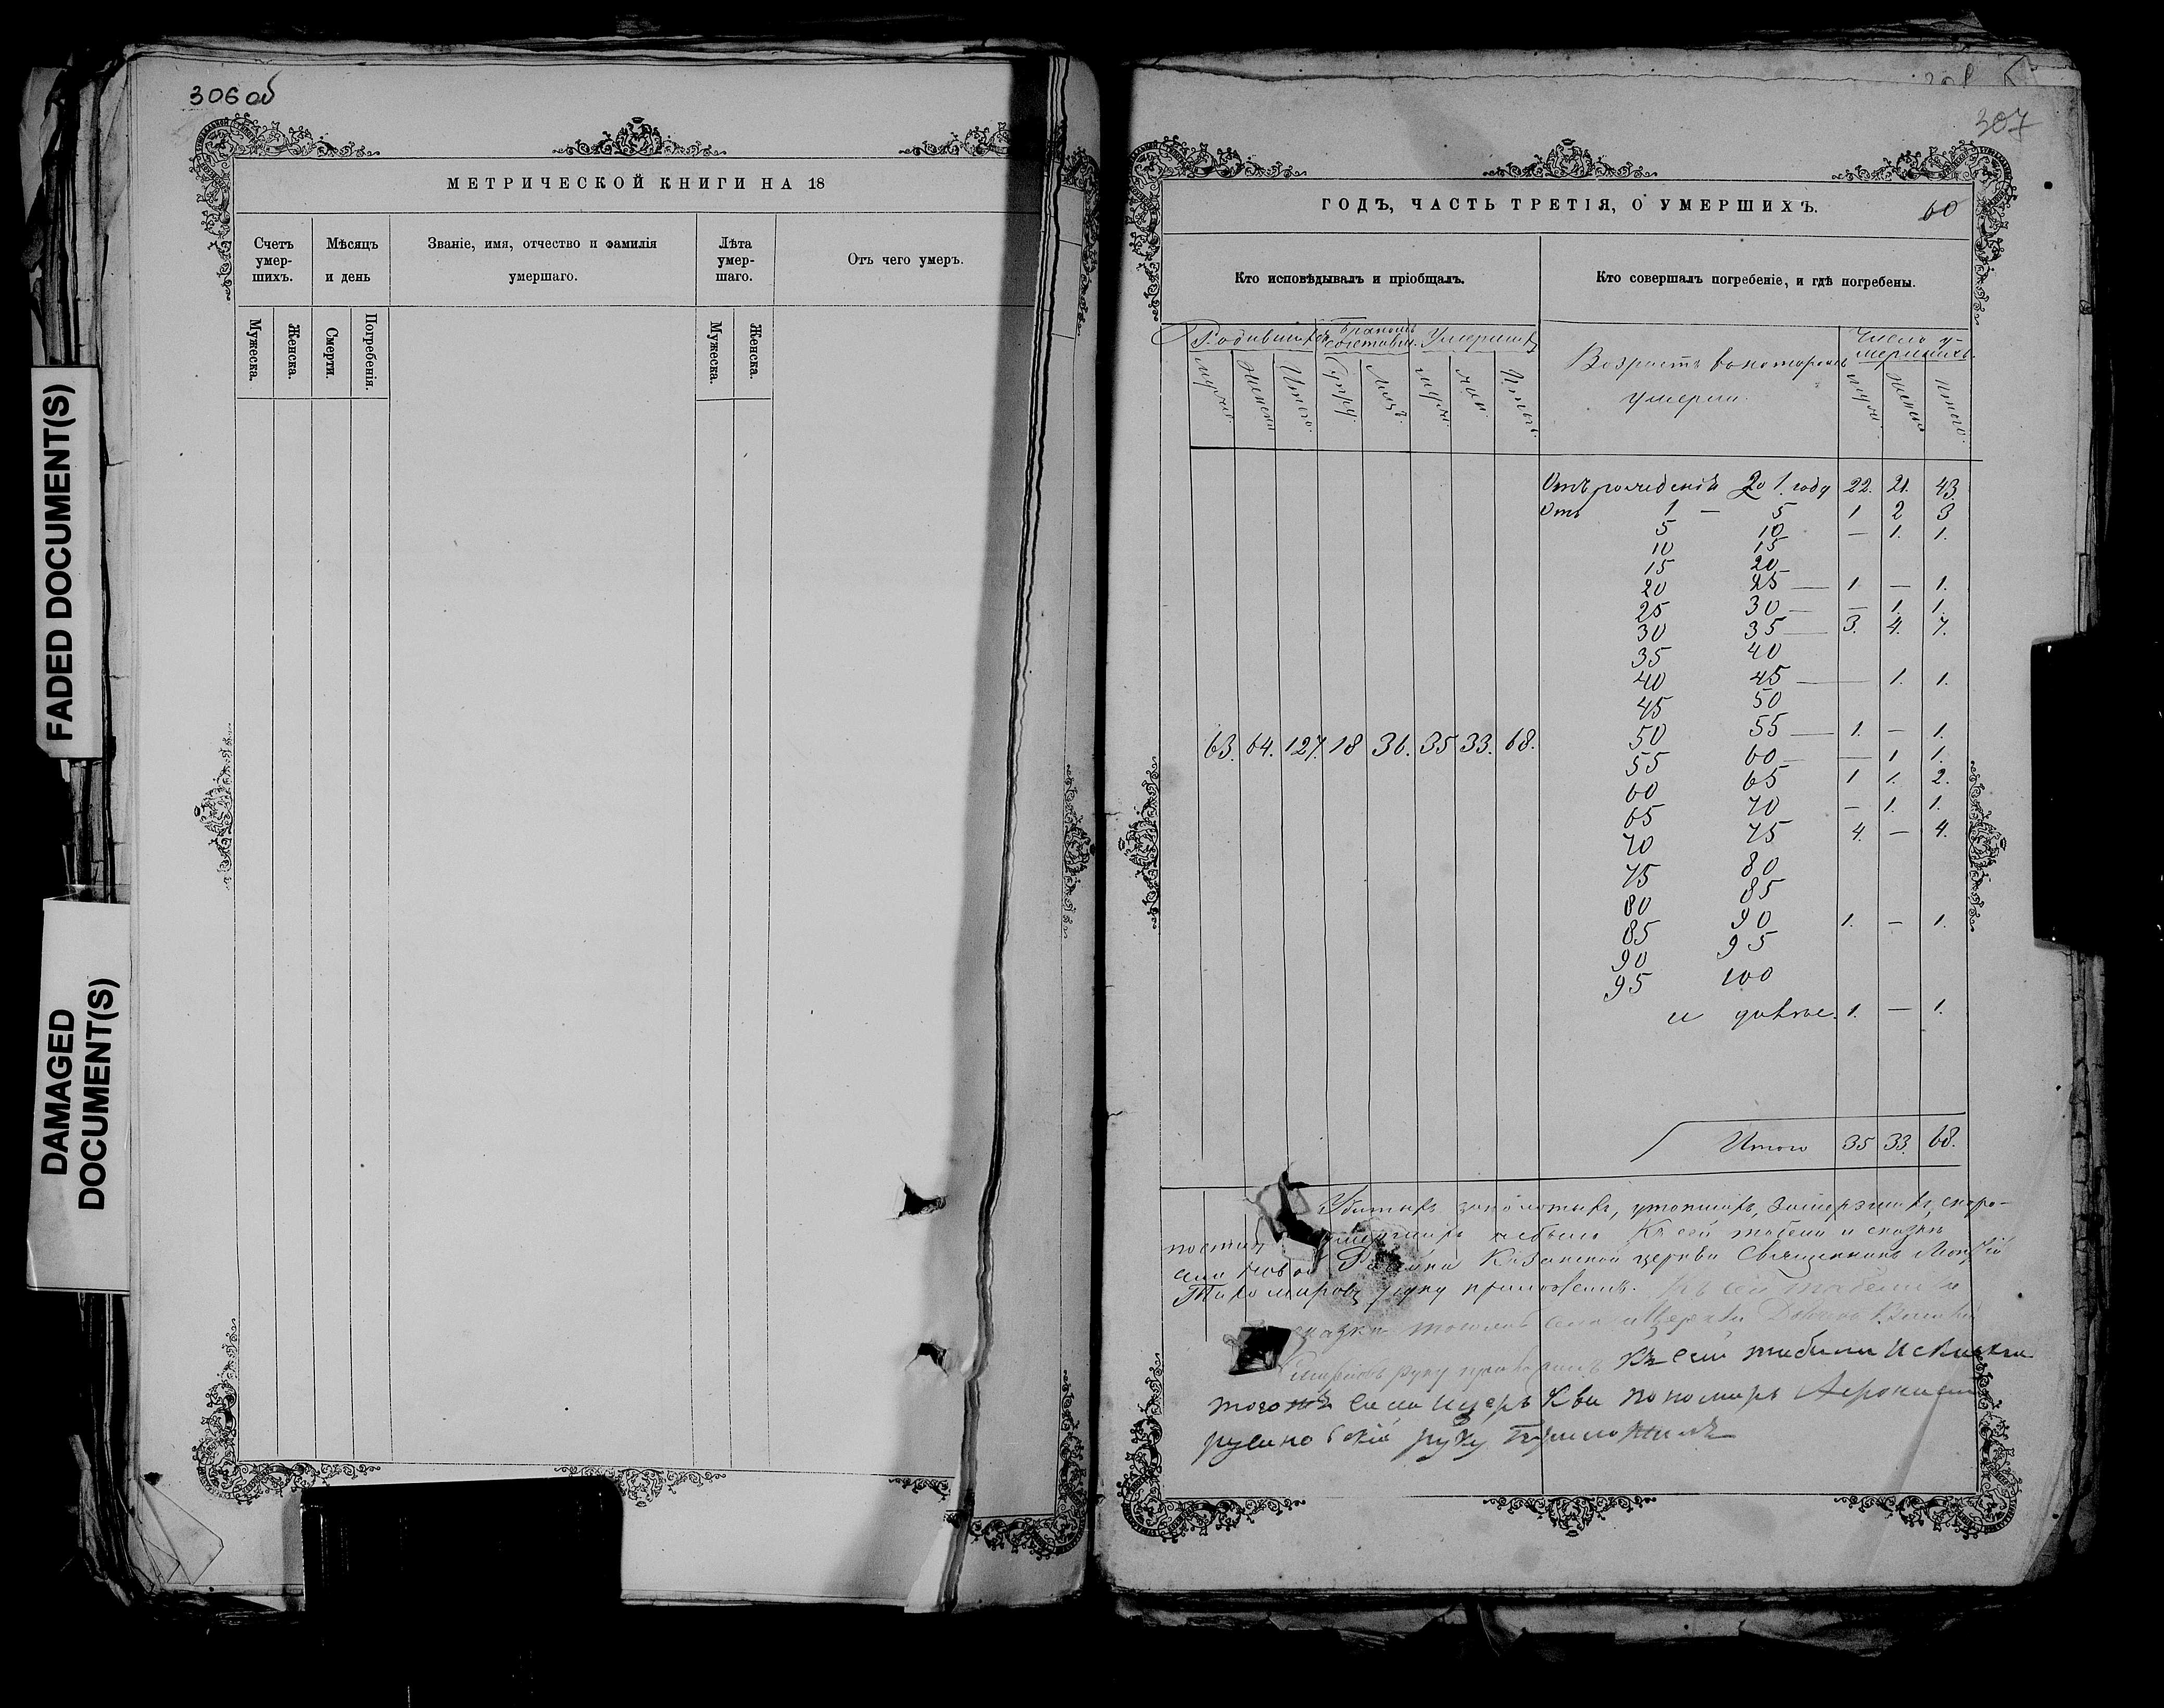 306 об
МЕТРИЧЕСКОЙ КНИГИ НА 18
Счетъ умер-шихъ.
Мѣсяцъ и день
Званіе, имя, отчество и фамилія умершаго.
Лѣта умер-шаго.
Отъ чего умеръ.
Мужеска.
Женска.
Смерти.
Погребенія.
Мужеска.
Женска.
FADED DOCUMENT(S)
DAMAGED
DOCUMENT(S)
307
ГОДЪ, ЧАСТЬ ТРЕТІЯ, О УМЕРШИХЪ.
60
Кто исповѣдывалъ и пріобщалъ.
Кто совершалъ погребеніе, и гдѣ погребены.
Родившихся
Умершихъ
Возрастъ въ которомъ
умерли.
Число у-
мершихъ.
Итого.
Итого.
Итого.
Отъ рожденія до 1. году 22. 21. 43.
Отъ 1 — 5 1 2 3
5 10 — 1. 1.
10 15
15 20
20 25 — 1. — 1.
25 30 — — 1. 1.
30 35 — 3. 4. 7.
35 40
40 45 — 1. 1.
45 50
50 55 — 1. — 1.
63. 64. 127. 18 36. 35 33. 68.
55 60 — — 1 1.
60 65 1 1. 2.
65 70 — 1. 1.
70 75 4. — 4.
75 80
80 85
85 90 1. — 1.
90 95
95 100
и далѣе. 1. — 1.
Итого 35 33. 68.
Убитыхъ утопшихъ, замерзшихъ, скоро-
постиж небыло Къ сей табели и
села Казанской церкви Священникъ
Тихомировъ руку приложилъ. Къ сей табели и
руку Къ сей табели и
тогожъ села церкви пономарь
руку приложилъ